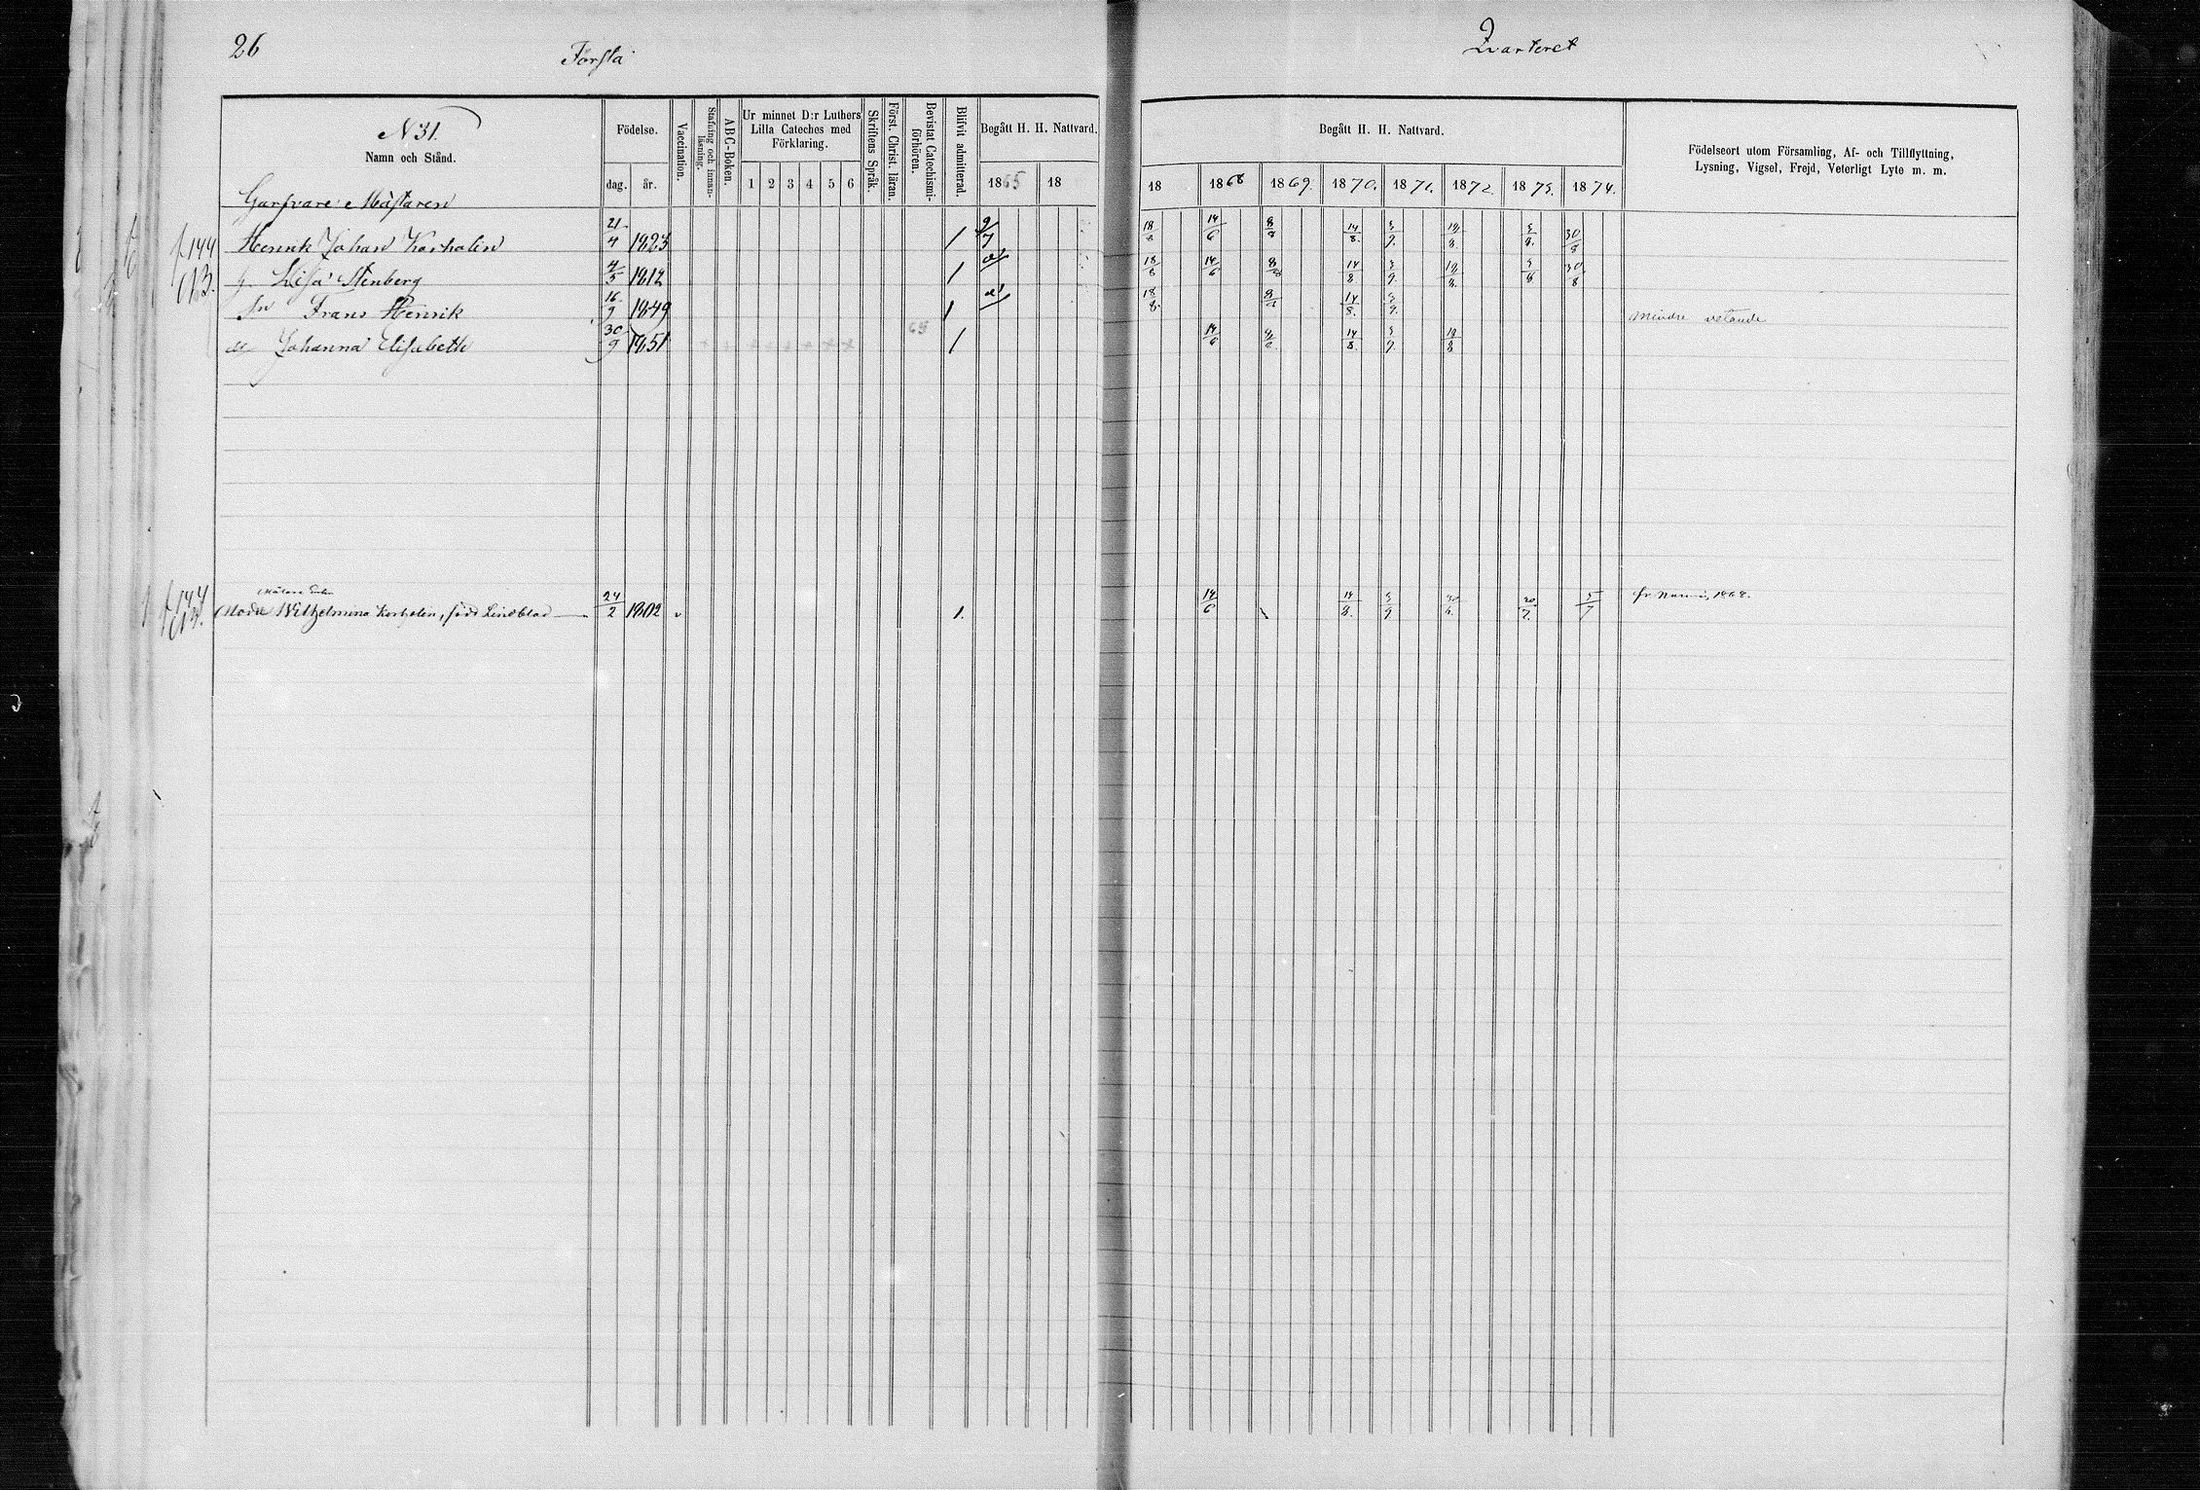 26
Första
Qvarteret
N 31.
Namn och Stånd.
Födelse.
dag.
år.
Vaccination.
Stafning och innan-läsning.
ABC-Boken.
Ur minnet D:r Luthers
Lilla Cateches med
Förklaring.
1 2 3 4 5 6
Skriftens Språk.
Först. Christ. läran.
Bevistat Catechismi-förhören.
Blifvit admitterad.
Begått H. H. Nattvard.
1865 18
Begått H. H. Nattvard.
18 1868 1869. 1870. 1871. 1872. 1873. 1874.
Födelseort utom Församling, Af- och Tillflyttning,
Lysning, Vigsel, Frejd, Veterligt Lyte m. m.
Garfvare Mästaren
f 144 Henrik Johan Korholin 21/4 1823 1 9/7 18/8 14/6 8/8 14/8. 3/9. 18/8. 3/8. 30/8
Lisa Stenberg 4/5 1812 1 18/8 14/6 8/8 14/8 3/9. 18/8. 3/8 30/8
Sn Frans Henrik 16/9 1849 1 18/8. 8/8 14/8. 3/9. Mindre vetande
Johanna Elisabeth 30/9 1851 65 1 14/6 14/8. 3/9. 18/8
f 144
Modr Wilhelmina Korholin, född Lindblad 24/2 1802 v 1. 14/6 14/8. 3/9 5/7 fr 1868.